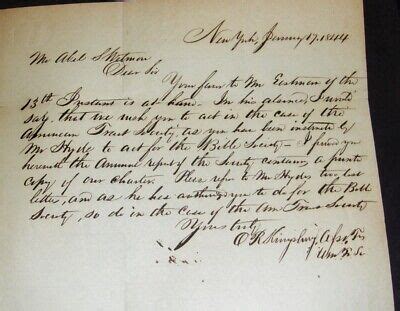 New York, January 17. 1844
Mr Abel Wetmore
Dear Sir
Your favor to Mr Eastman of the
13th Instant is at hand. In his absence, I would
say, that we wish you to act in the case of the
American Tract Society, as you have been instructed by
Mr Hyde to act for the Bible Society - I send you
herewith the Annual report of the Society containing a printed
copy of our charter. Please refer to Mr Hydes last
letter, and as he has authorized you to do for the Bible
Society, so do in the case of the Am Tract Society
Yours truly
O R Kingsbury, Asst Tr
Am T. So